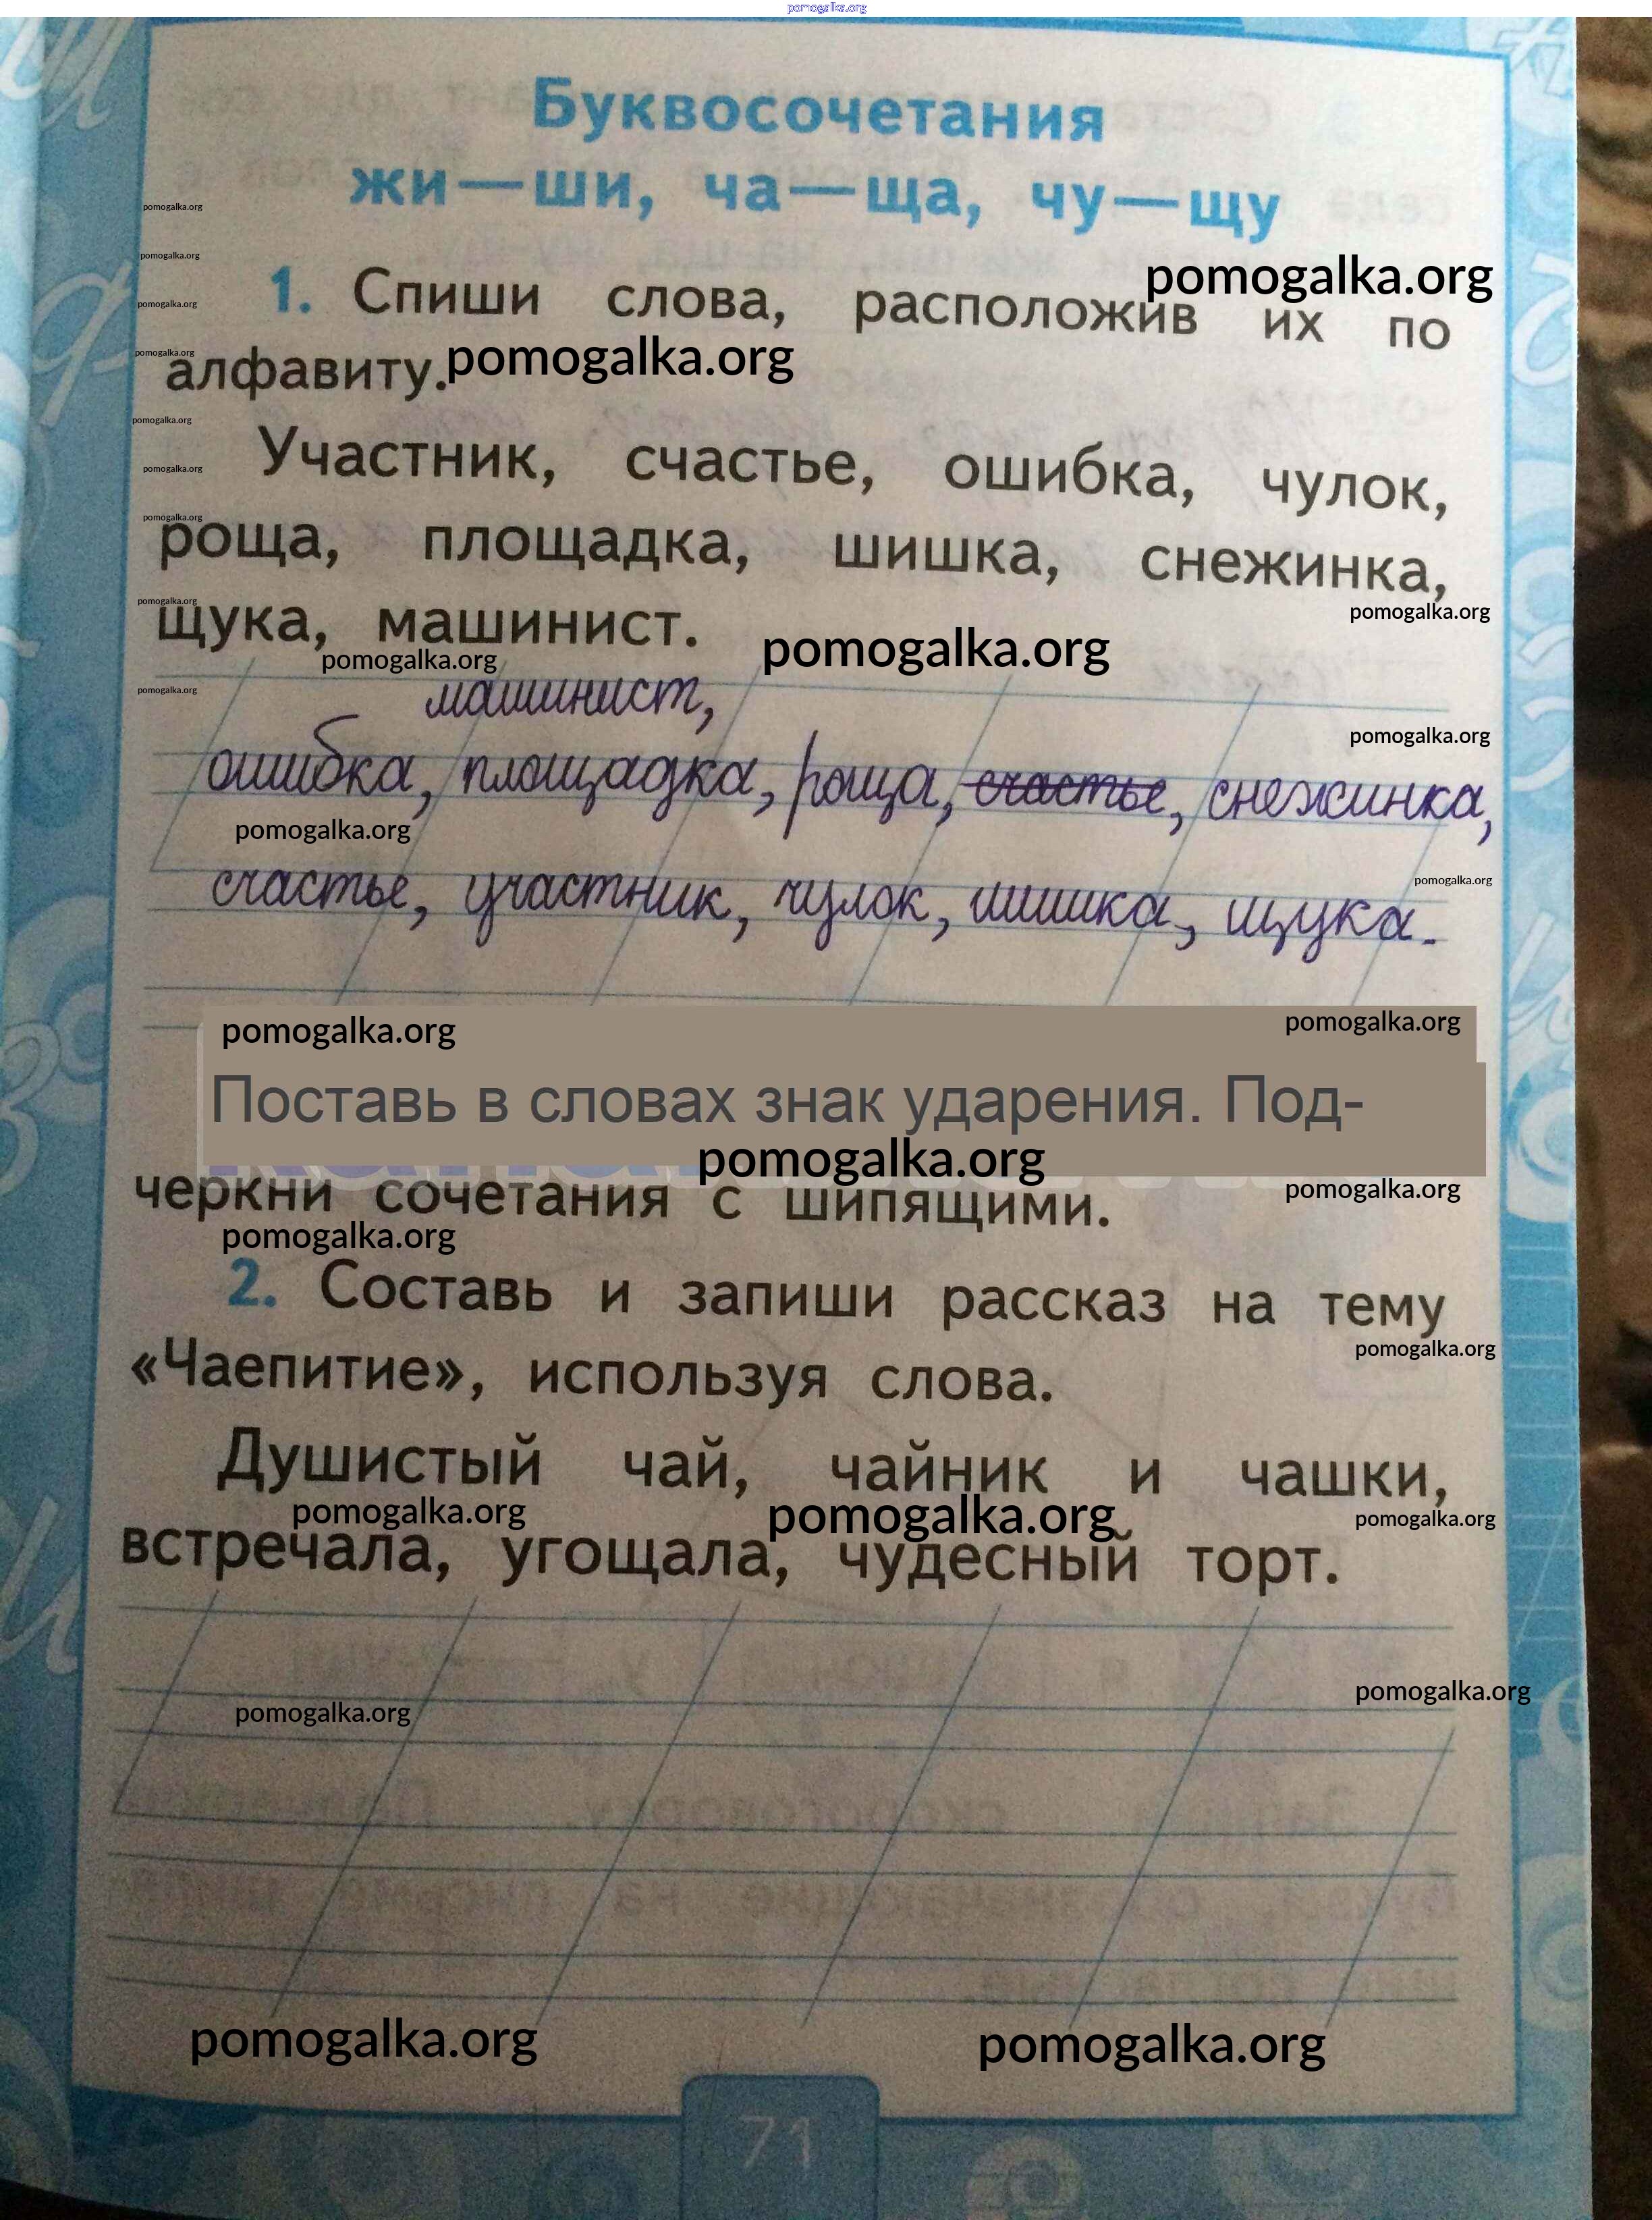 pomogalka.org
Буквосочетания
жи—ши, ча—ща, чу—щу
pomogalka.org
pomogalka.org
pomogalka.org
1. Спиши слова, расположив их по
pomogalka.org
pomogalka.org
алфавиту.
pomogalka.org
pomogalka.org
Участник, счастье, ошибка, чулок,
pomogalka.org
pomogalka.org
роща, площадка, шишка, снежинка,
pomogalka.org
pomogalka.org
щука, машинист.
pomogalka.org
pomogalka.org
pomogalka.org
машинист,
pomogalka.org
ошибка, площадка, роща, счастье, снежинка,
pomogalka.org
pomogalka.org
счастье, участник, чулок, шишка, щука.
pomogalka.org
pomogalka.org
Поставь в словах знак ударения. Под-
pomogalka.org
черкни сочетания с шипящими.
pomogalka.org
pomogalka.org
2. Составь и запиши рассказ на тему
pomogalka.org
«Чаепитие», используя слова.
Душистый чай, чайник и чашки,
pomogalka.org
pomogalka.org
pomogalka.org
встречала, угощала, чудесный торт.
pomogalka.org
pomogalka.org
pomogalka.org
pomogalka.org
71